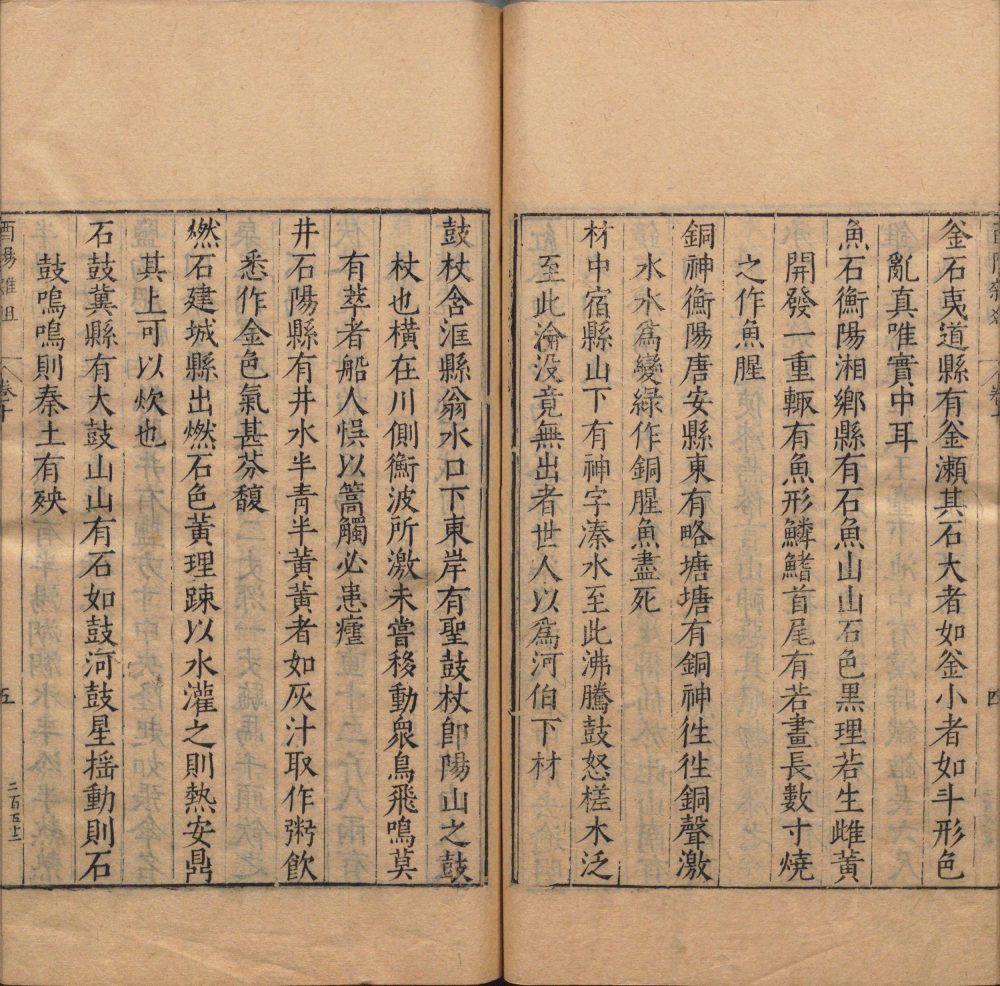 釜石夷道縣有釜瀨其石大者如釜小者如斗形色
亂真唯實中耳
魚石衡陽湘鄉縣有石魚山山石色黑理若生雌黃
開發一重輒有魚形鱗鰭首尾有若畫長數寸燒
之作魚腥
銅神衡陽唐安縣東有略塘塘有銅神徃徃銅聲激
水水爲變綠作銅腥魚盡死
材中宿縣山下有神字溱水至此沸騰鼓怒槎木泛
至此淪没竟無出者世人以爲河伯下材
鼓杖含洭縣翁水口下東岸有聖鼓杖卽陽山之鼓
杖也橫在川側衝波所激未嘗移動衆鳥飛鳴莫
有萃者船人悞以篙觸必患瘧
井石陽縣有井水半青半黃黃者如灰汁取作粥飲
悉作金色氣甚芬馥
燃石建城縣出燃石色黃理踈以水灌之則熱安鼎
其上可以炊也
石鼓冀縣有大鼓山山有石如鼓河鼓星摇動則石
鼓鳴鳴則秦土有殃
酉陽雜俎 卷十 五